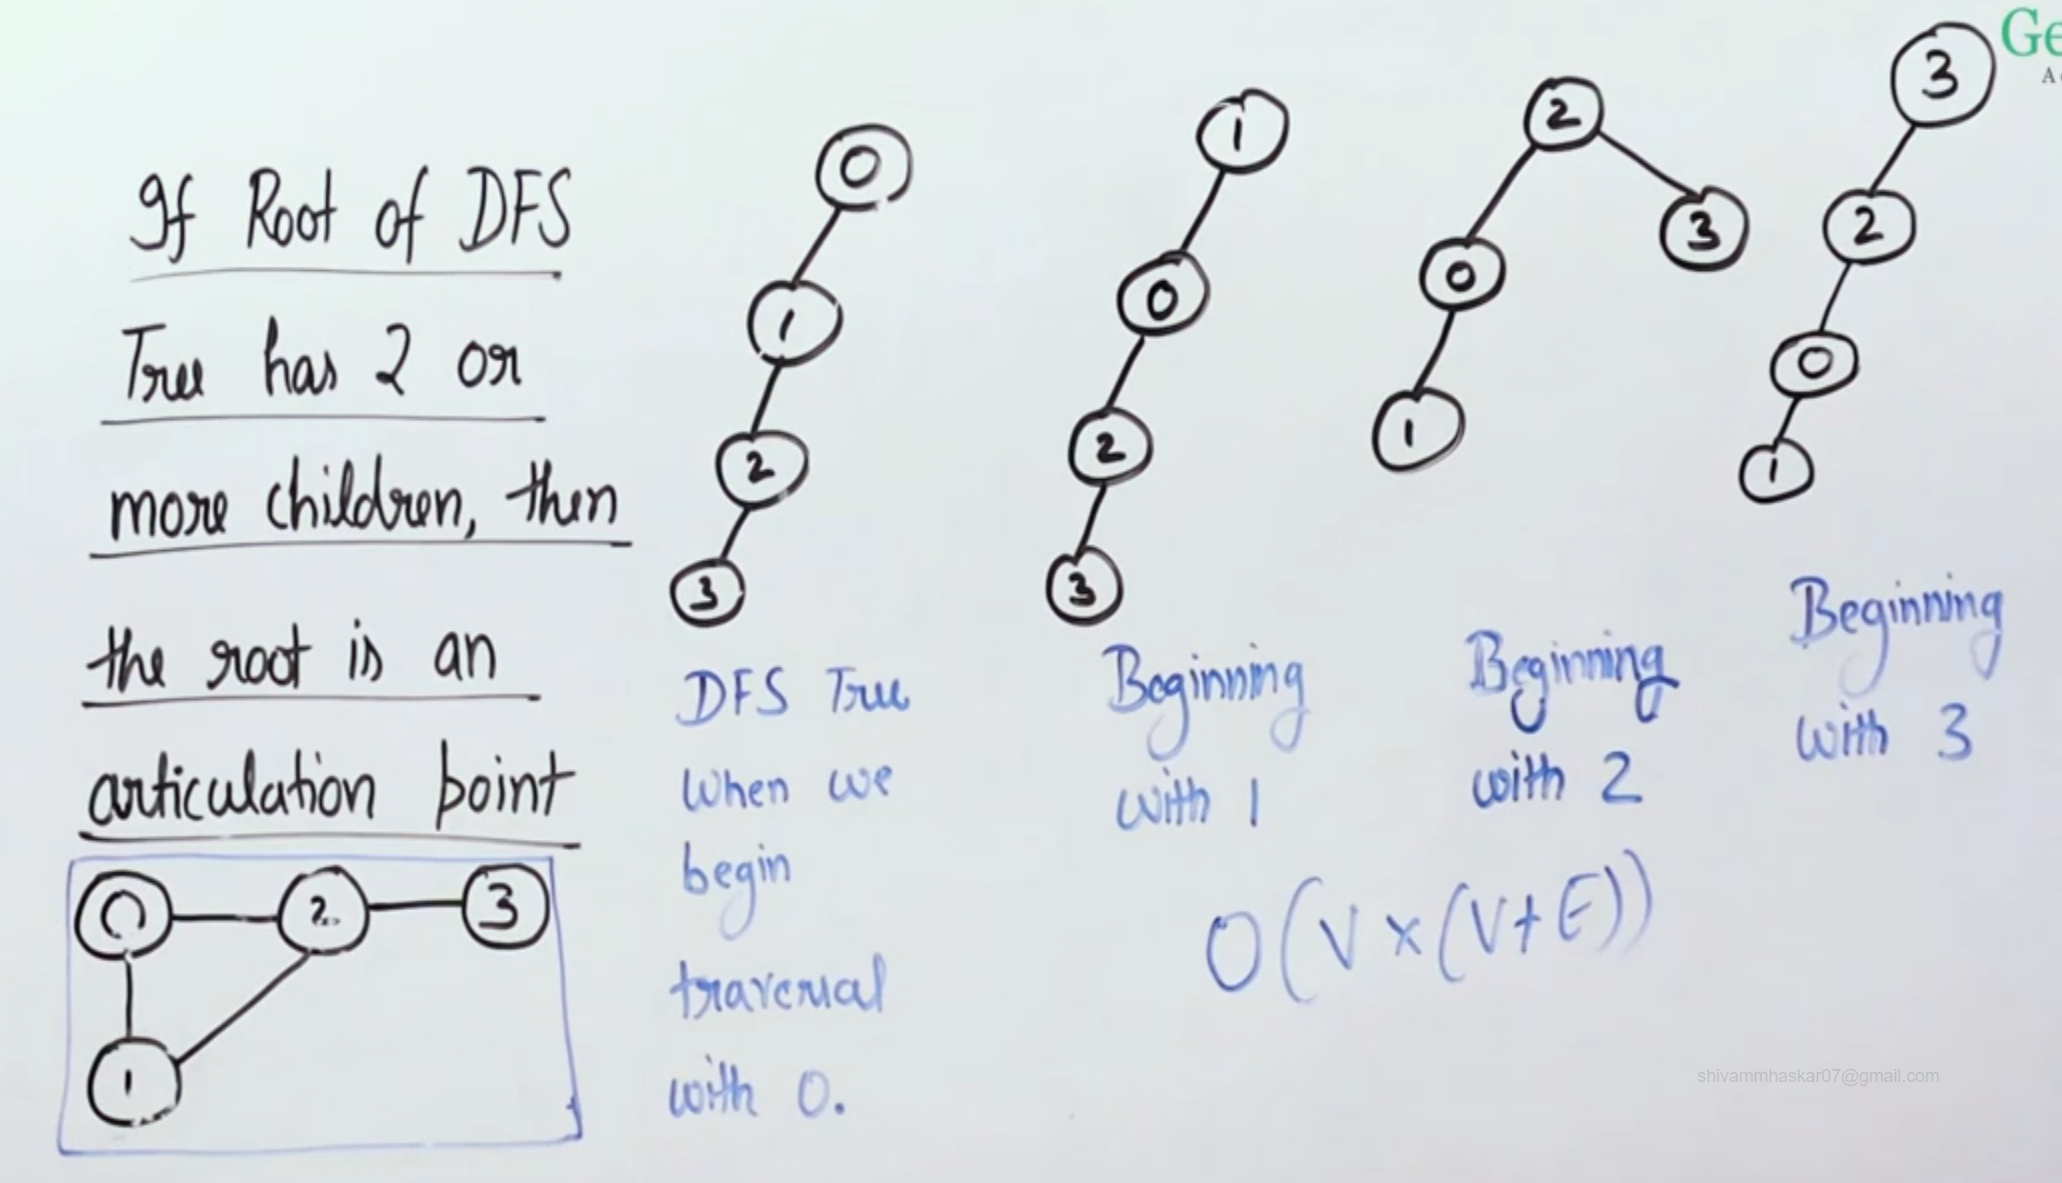 If Root of DFS
Tree has 2 or
more children, then
the root is an
articulation point
0 2 3
1
0
1
2
3
DFS Tree
When we
begin
traversal
with 0.
1
0
2
3
Beginning
with 1
2
0 3
1
Beginning
with 2
3
2
0
1
Beginning
with 3
O(V x (V+E))
Ge
shivammhaskar07@gmail.com